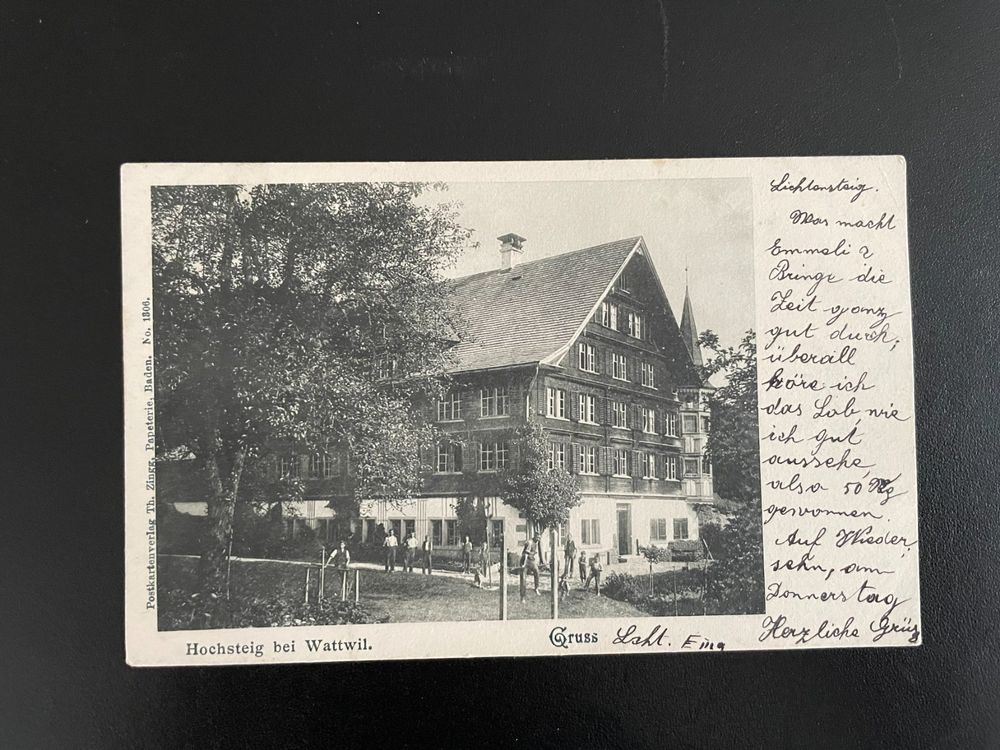 Postkartenverlag Th. Zingg, Papeterie, Baden. No. 1306.
Hochsteig bei Wattwil.
Gruss
Lichtensteig.
Was macht
Emmeli?
Bringe die
Zeit ganz
gut durch,
überall
höre ich
das Lob, wie
ich gut
aussehe,
also 50 Kg
gewonnen.
Auf Wieder
sehn, am
Donnerstag
Herzliche Grüs